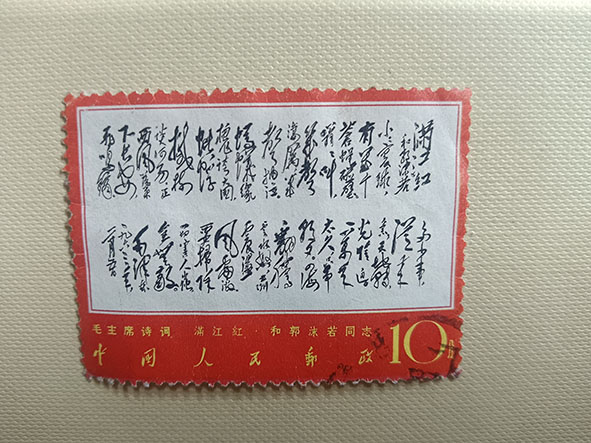 满江红
和郭沫若
小小寰球
有几个
苍蝇碰壁
嗡嗡叫
几声
凄厉几
声抽泣
蚂蚁缘
槐夸大国
蚍蜉
撼树
谈何易正
西风落叶
下长安
飞鸣镝
多少事
从来急
天地转
光阴迫
一万年
太久只争
朝夕
翻腾
云水怒五洲
震荡
风雷激
要扫除
一切害人虫
全无敌
毛泽东
一九六三年
毛主席诗词 满江紅·和郭沫若同志
中国人民郵政 10分